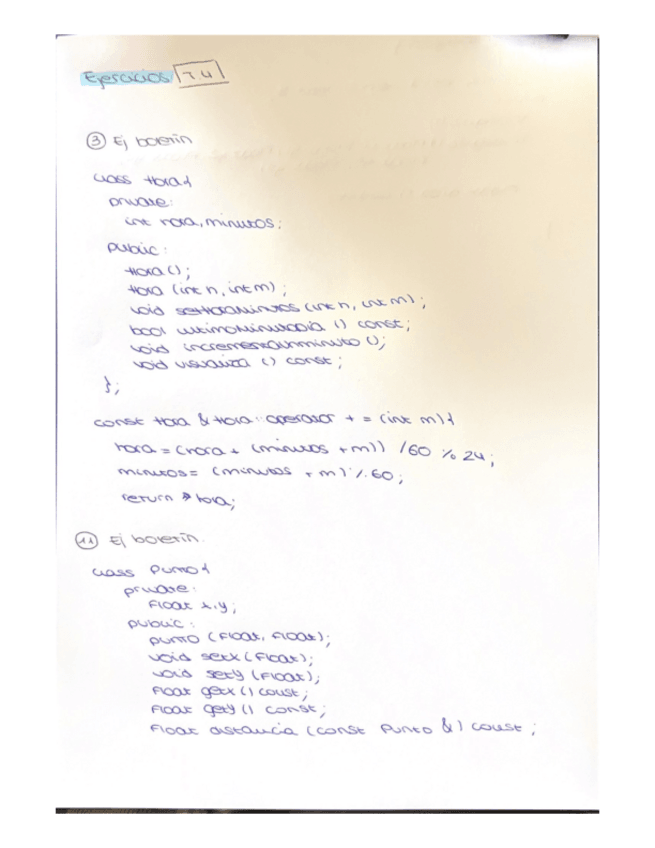 Ejercicios T.4
③ Ej boletín
class Hora{
private:
int hora, minutos;
public:
Hora();
Hora (int n, int m);
void setHoraMinutos (int n, int m);
bool ultimoMinutoDia () const;
void incrementaUnminuto ();
void visualiza () const;
};
const Hora & Hora::operator += (int m){
hora = (hora + (minutos + m)) /60 % 24;
minutos = (minutos + m) % 60;
return * hora;
⑪ Ej boletín.
class Punto{
private:
float x,y;
public:
punto (float, float);
void setx (float);
void sety (float);
float getx () const;
float gety () const;
float distancia (const Punto &) const;